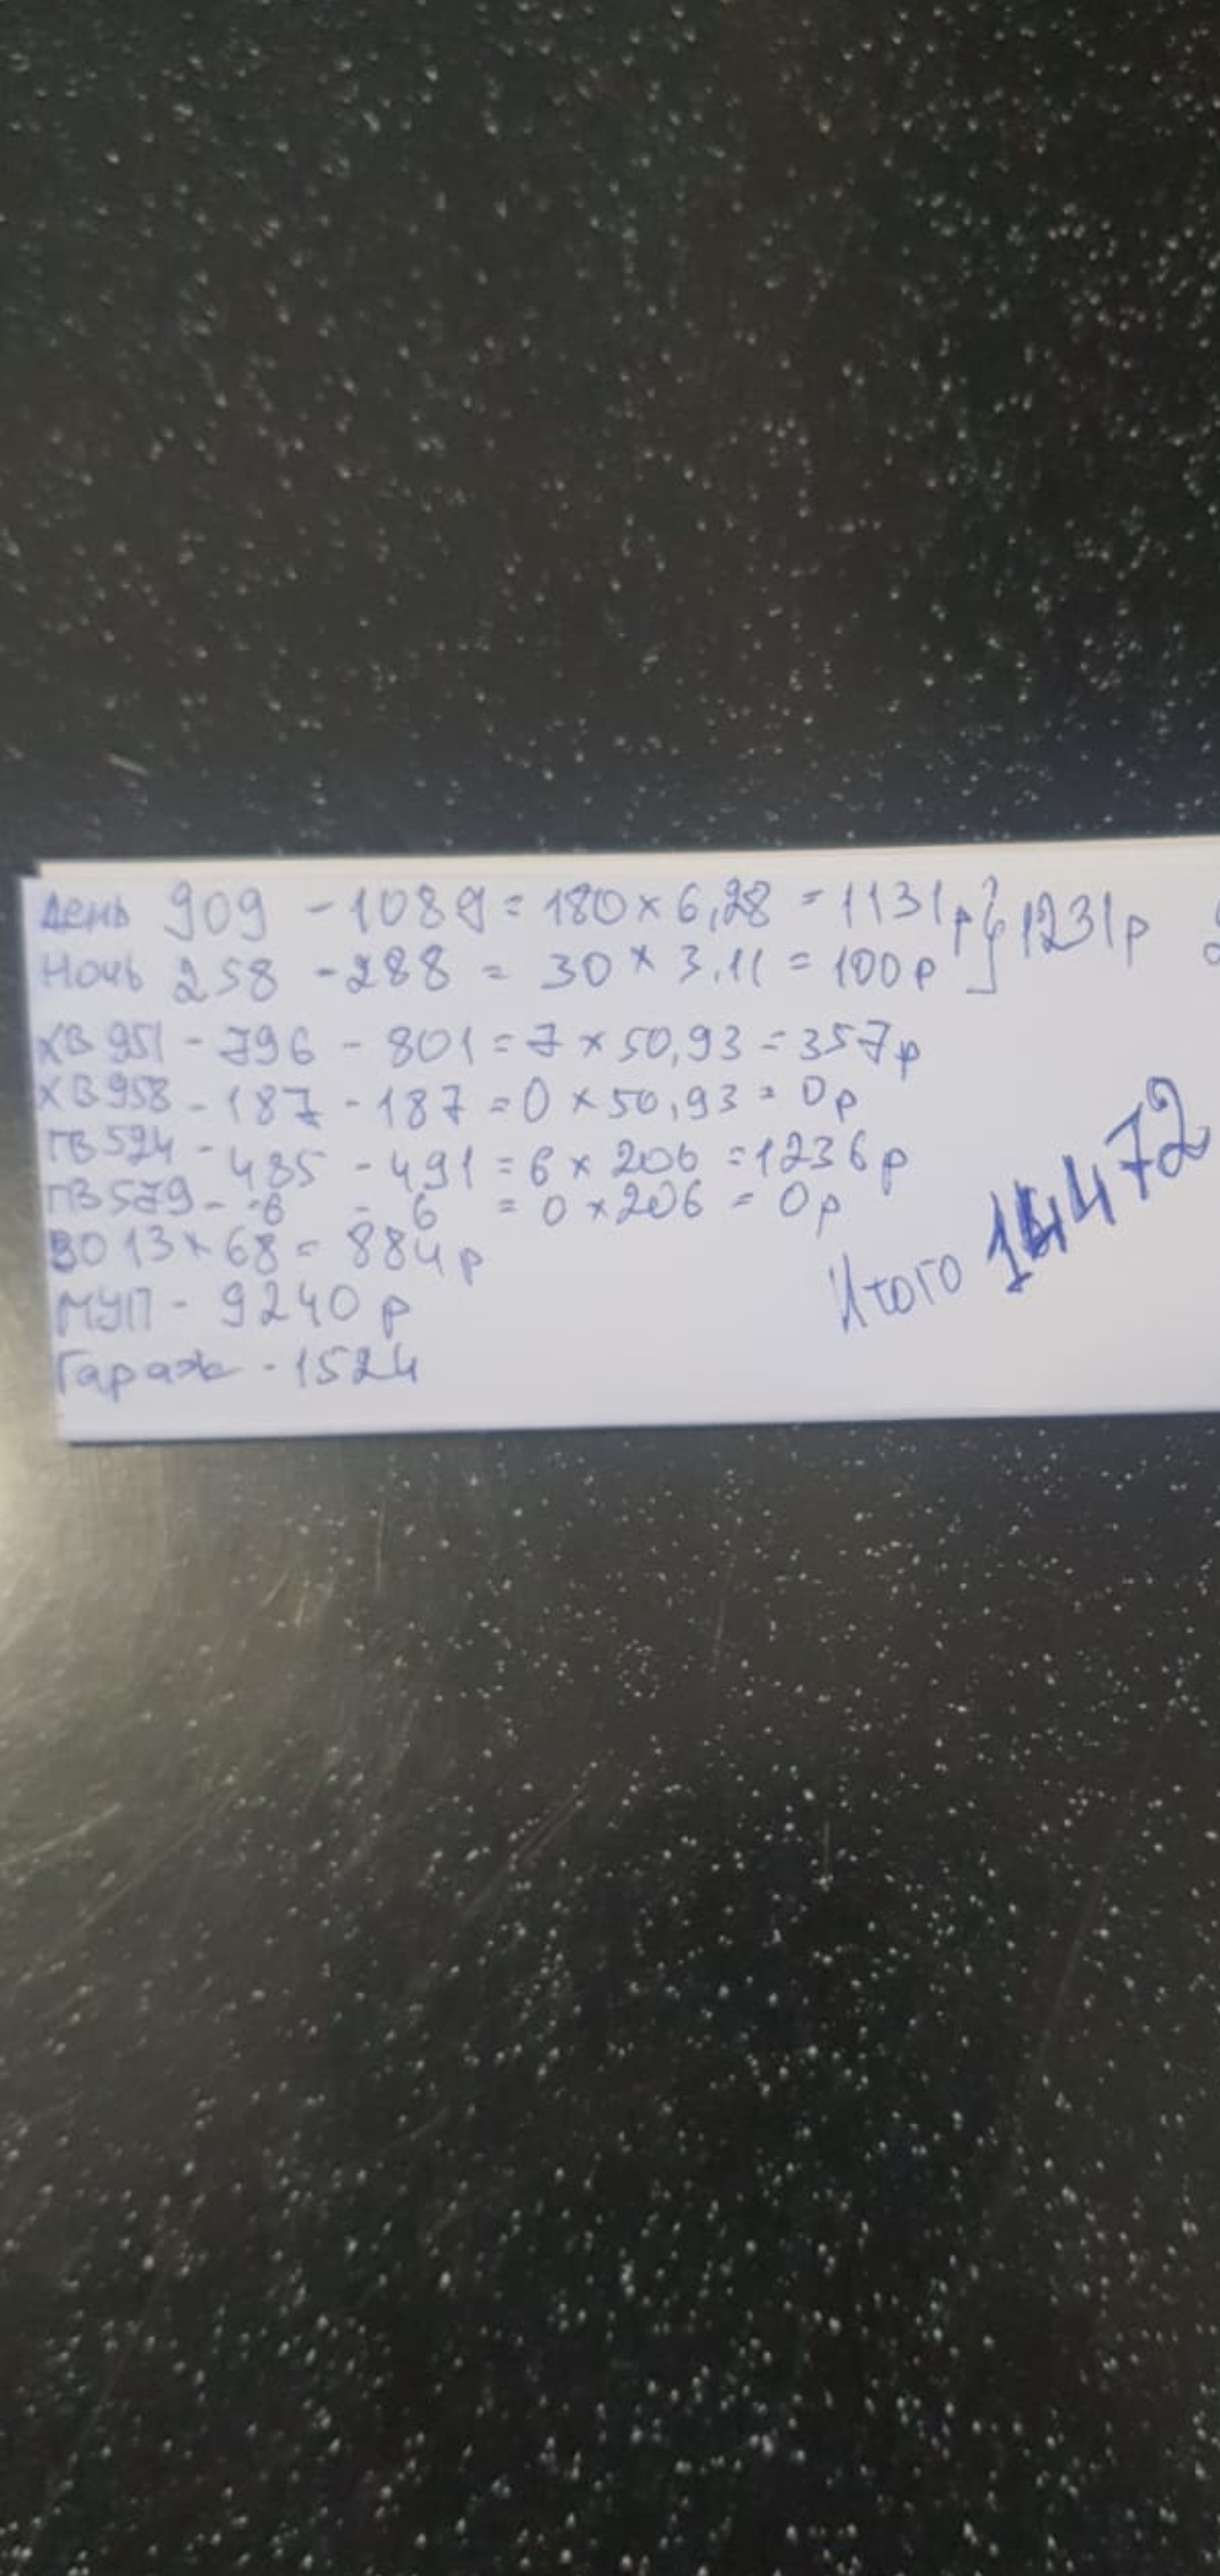 День 909 - 1089 = 180 x 6,28 = 1131р } 1231р
Ночь 258 - 288 = 30 x 3.11 = 100р
ХВ 951 - 796 - 801 = 7 x 50,93 = 357р
ХВ 958 - 187 - 187 = 0 x 50,93 = 0р
ГВ 524 - 485 - 491 = 6 x 206 = 1236р
ГВ 579 - 6 - 6 = 0 x 206 = 0р
ВО 13 x 68 = 884р
МУП - 9240р
Гараж - 1524
Итого 14472